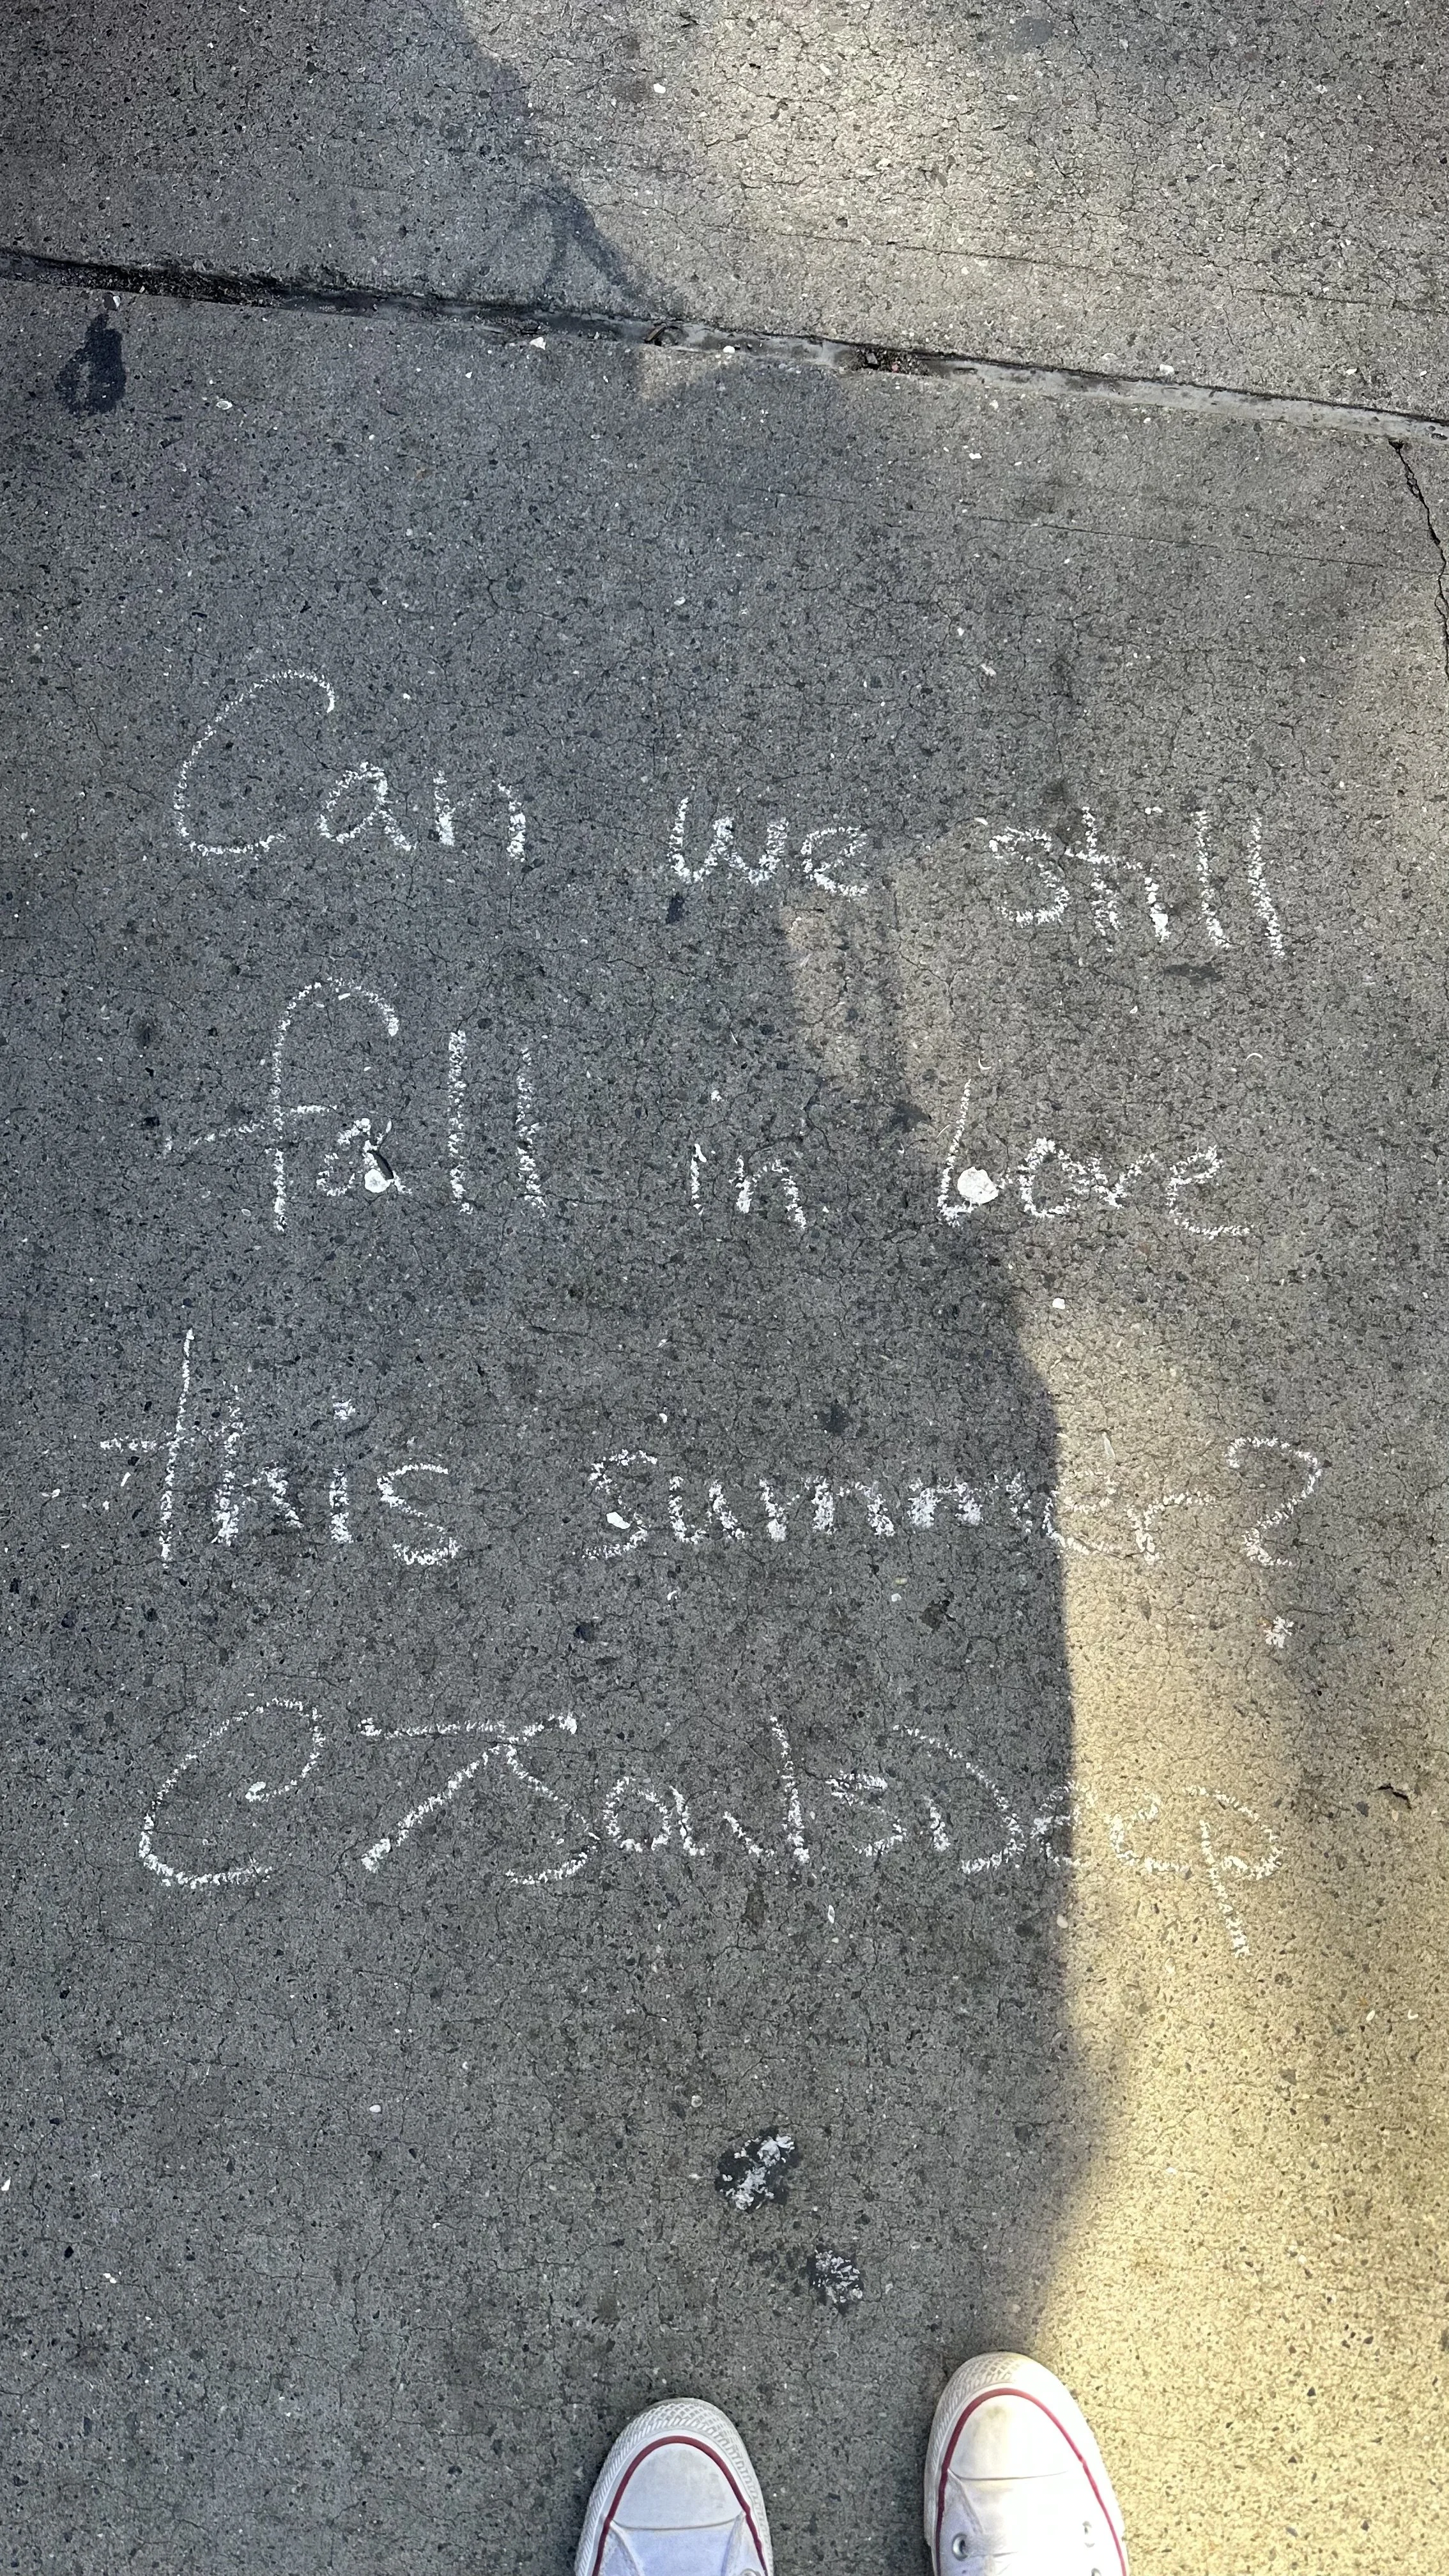 Can we still
fall in love
this summer?